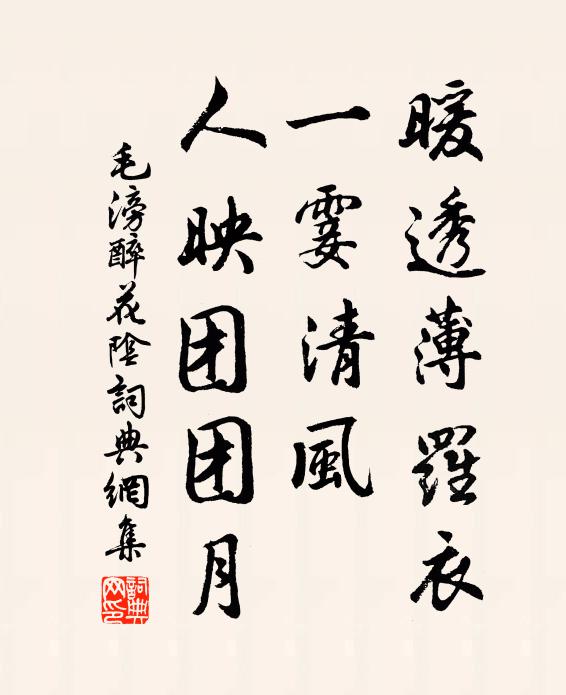 暖透薄羅衣
一霎清風
人映团团月
毛滂醉花陰詞典網集
詞典网印